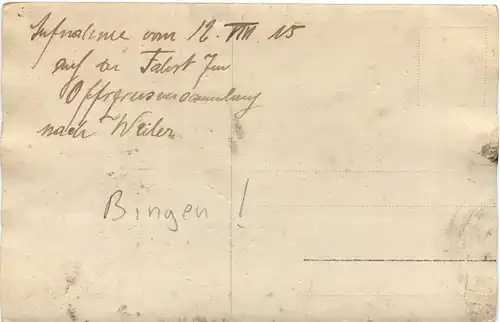 Aufnahme vom 12. VIII. 15
auf der Fahrt zur
Offiziersversammlung
nach Weiler
Bingen!